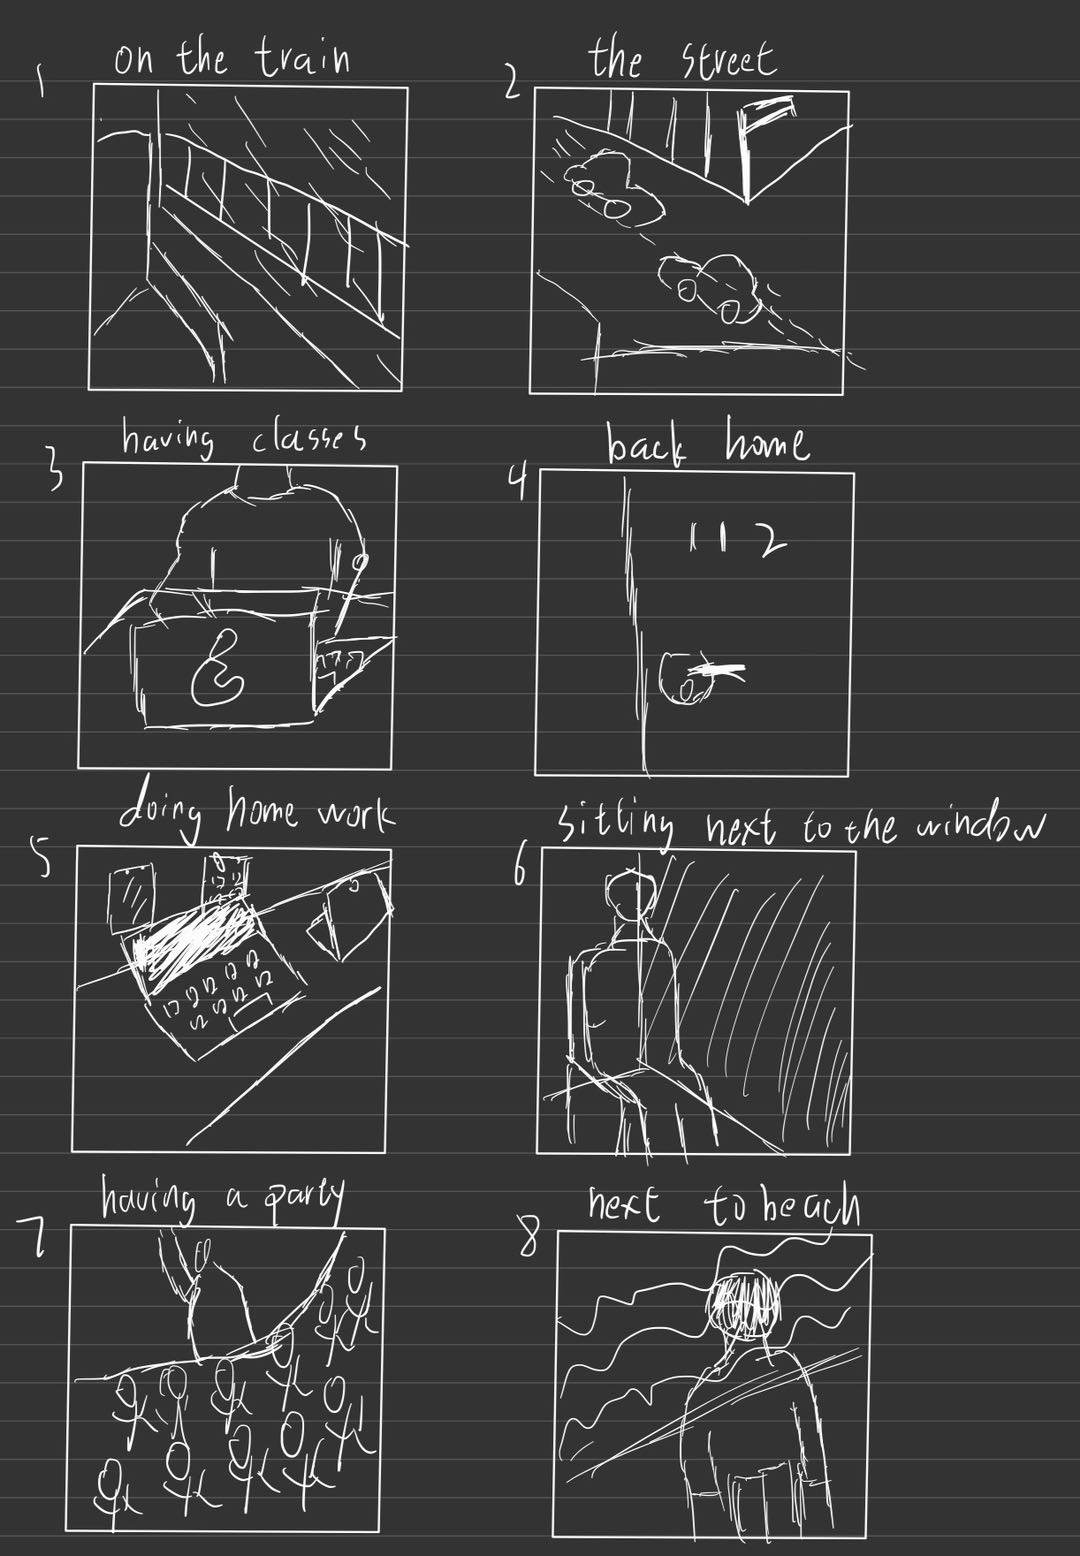 1 on the train
2 the street
3 having classes
4 back home
112
5 doing home work
6 sitting next to the window
7 having a party
8 next to beach